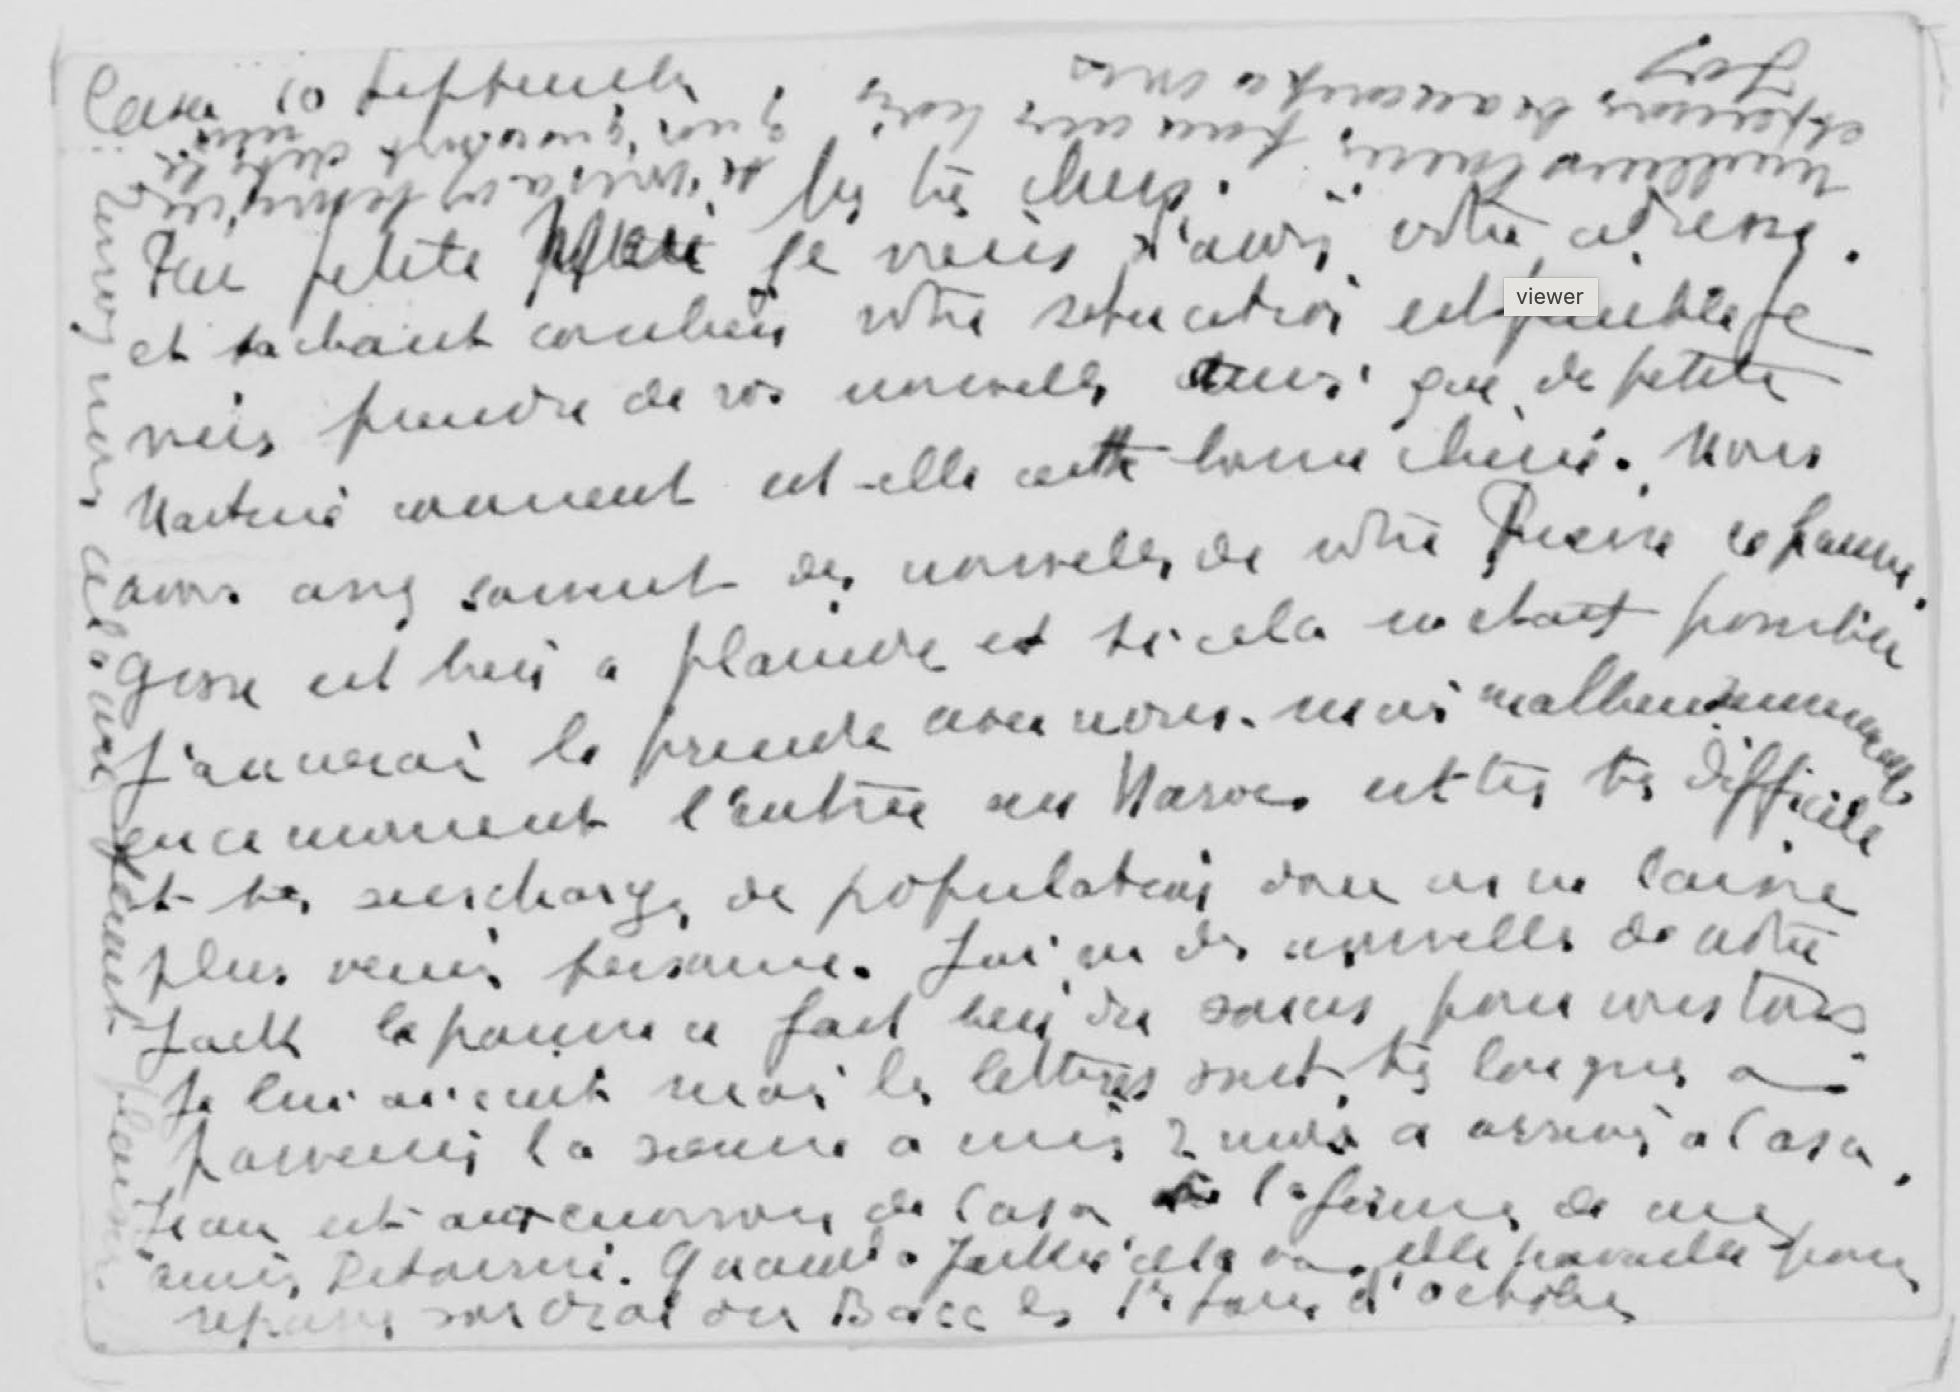 Casa 10 Septembre
Mes très chers.
Ma petite je viens d'avoir votre adresse.
et sachant combien votre situation est pénible je
viens prendre de vos nouvelles ainsi que de petite
comment est-elle cette bonne chérie. Nous
avons assez souvent des nouvelles de votre Pierre ce pauvre
gosse est bien a plaindre et si cela en etait possible
j'aimerai le prendre avec nous. mais malheureusement
en ce moment l'entrée au Maroc est très très difficile
et très surchargé de population donc on ne laisse
plus venir personne. J'ai eu des nouvelles de votre
Jack le pauvre a fait bien du soucis pour vous tous
Je lui ai écrit mais les lettres sont très longues a
parvenir la sienne a mis 2 mois a arriver a Casa.
Jean est aux environs de Casa la ferme de
amis. Quand a cela va, elle travaille pour
repasser son oral du Bacc les 1er jours d'octobre
viewer
Envoyez nous cela me ferait plaisir.
meilleurs pour mes
et pensons beaucoup a vous